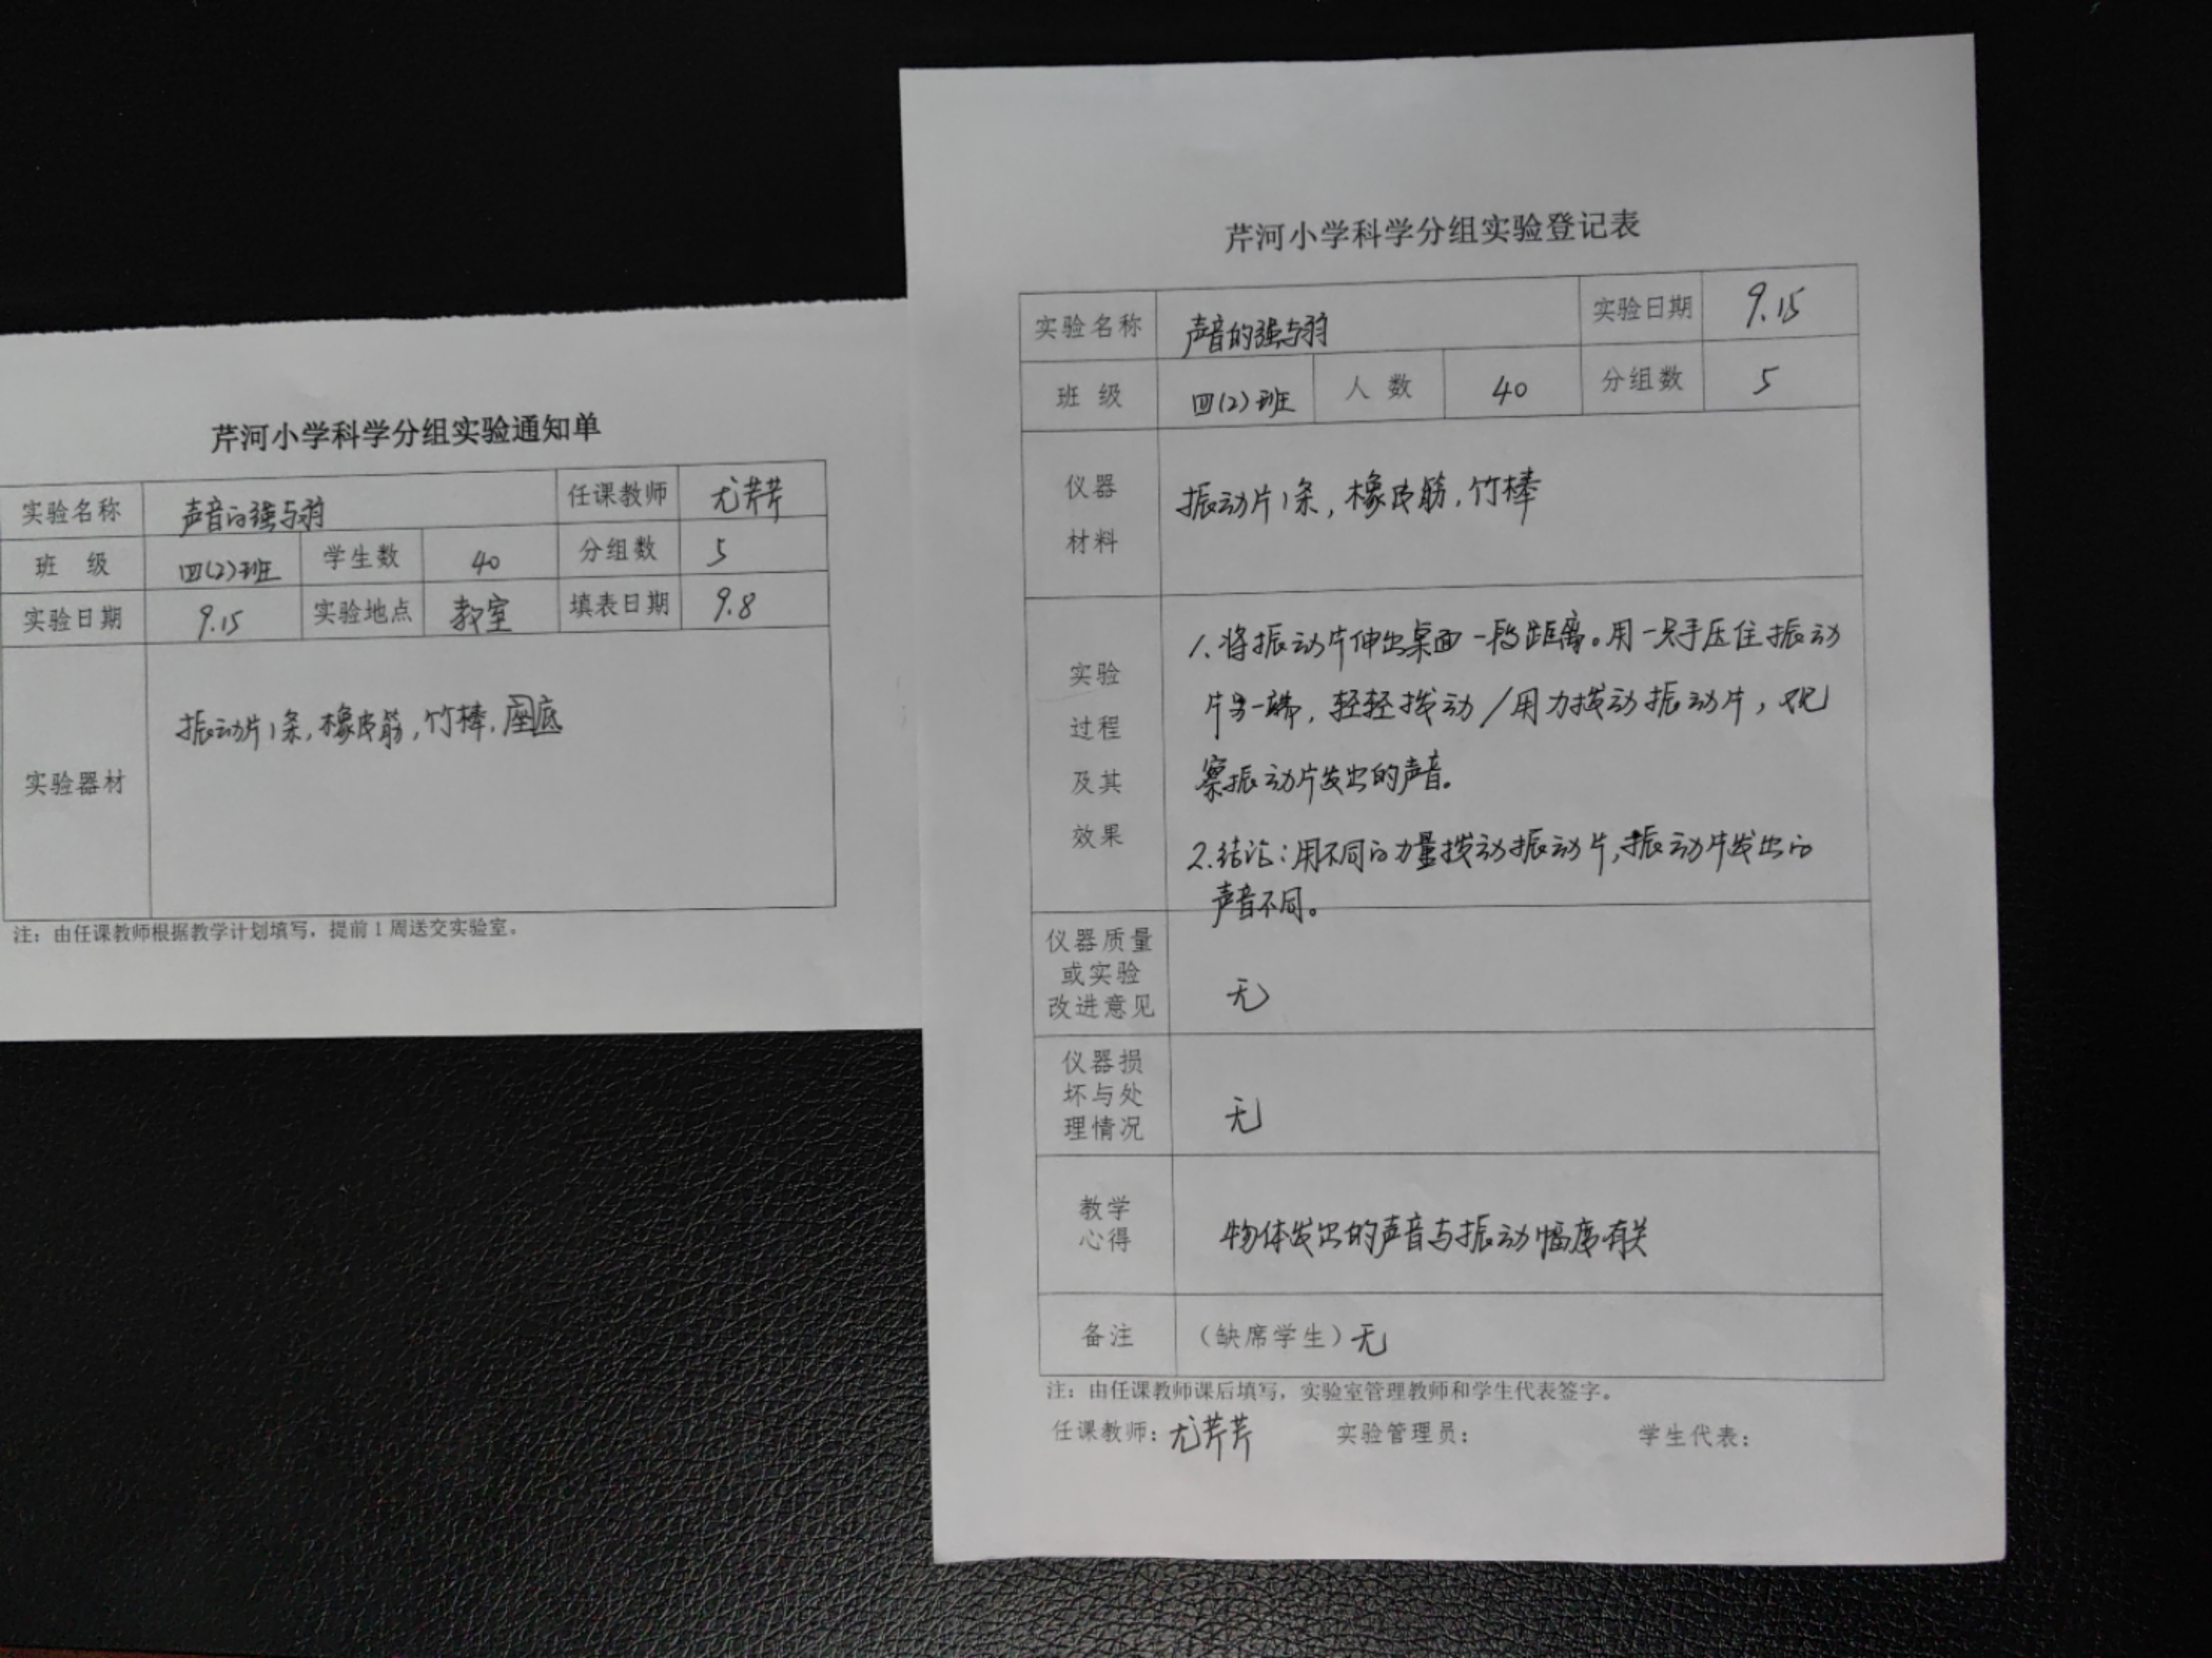 芹河小学科学分组实验通知单
实验名称 声音的强与弱 任课教师 尤芹芹
班 级 四(2)班 学生数 40 分组数 5
实验日期 9.15 实验地点 教室 填表日期 9.8
实验器材 振动片1条,橡皮筋,竹棒,座底
注：由任课教师根据教学计划填写，提前1周送交实验室。
芹河小学科学分组实验登记表
实验名称 声音的强与弱 实验日期 9.15
班 级 四(2)班 人 数 40 分组数 5
仪器
材料
振动片1条,橡皮筋,竹棒
实验
过程
及其
效果
1.将振动片伸出桌面一段距离。用一只手压住振动
片另一端,轻轻拨动/用力拨动振动片,观
察振动片发出的声音。
2.结论:用不同的力量拨动振动片,振动片发出的
声音不同。
仪器质量
或实验
改进意见
无
仪器损
坏与处
理情况
无
教学
心得
物体发出的声音与振动幅度有关
备注 （缺席学生）无
注：由任课教师课后填写，实验室管理教师和学生代表签字。
任课教师：尤芹芹 实验管理员： 学生代表：